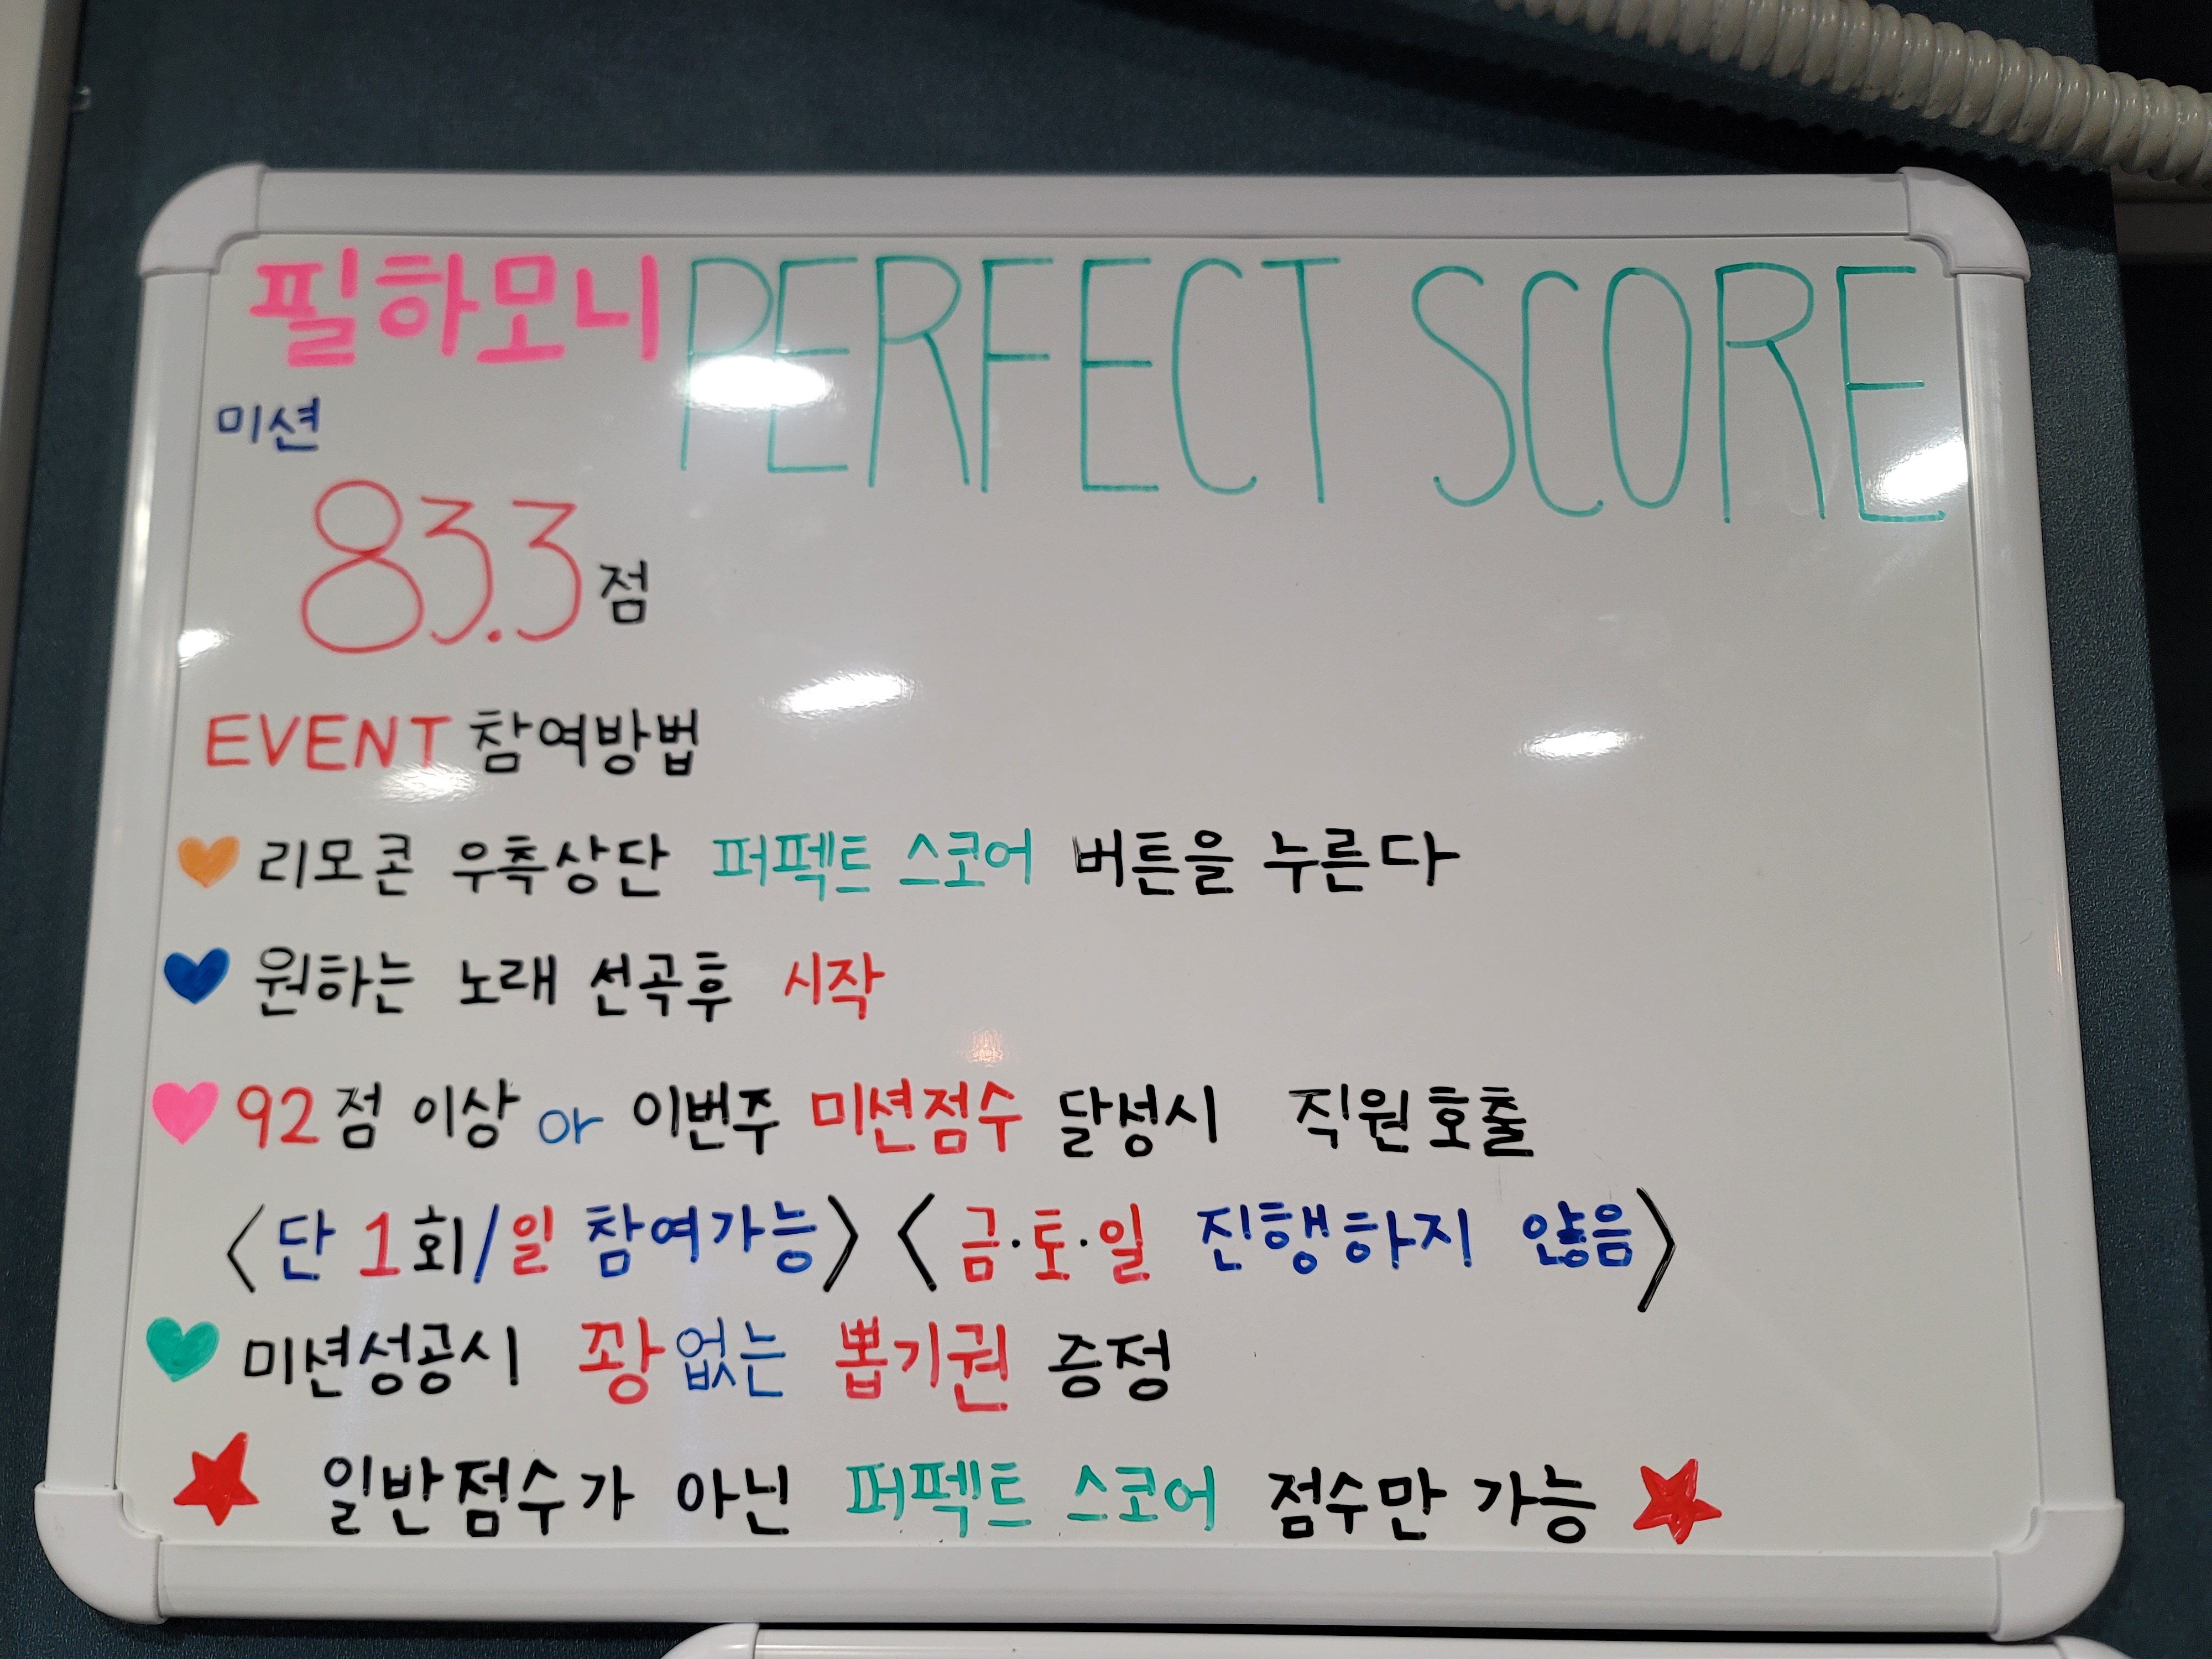 필하모니 PERFECT SCORE
미션
83.3점
EVENT 참여방법
리모콘 우측상단 퍼펙트 스코어 버튼을 누른다
원하는 노래 선곡후 시작
92점 이상 or 이번주 미션점수 달성시 직원호출
<단 1회/일 참여가능> <금·토·일 진행하지 않음>
미션성공시 꽝없는 뽑기권 증정
일반점수가 아닌 퍼펙트 스코어 점수만 가능